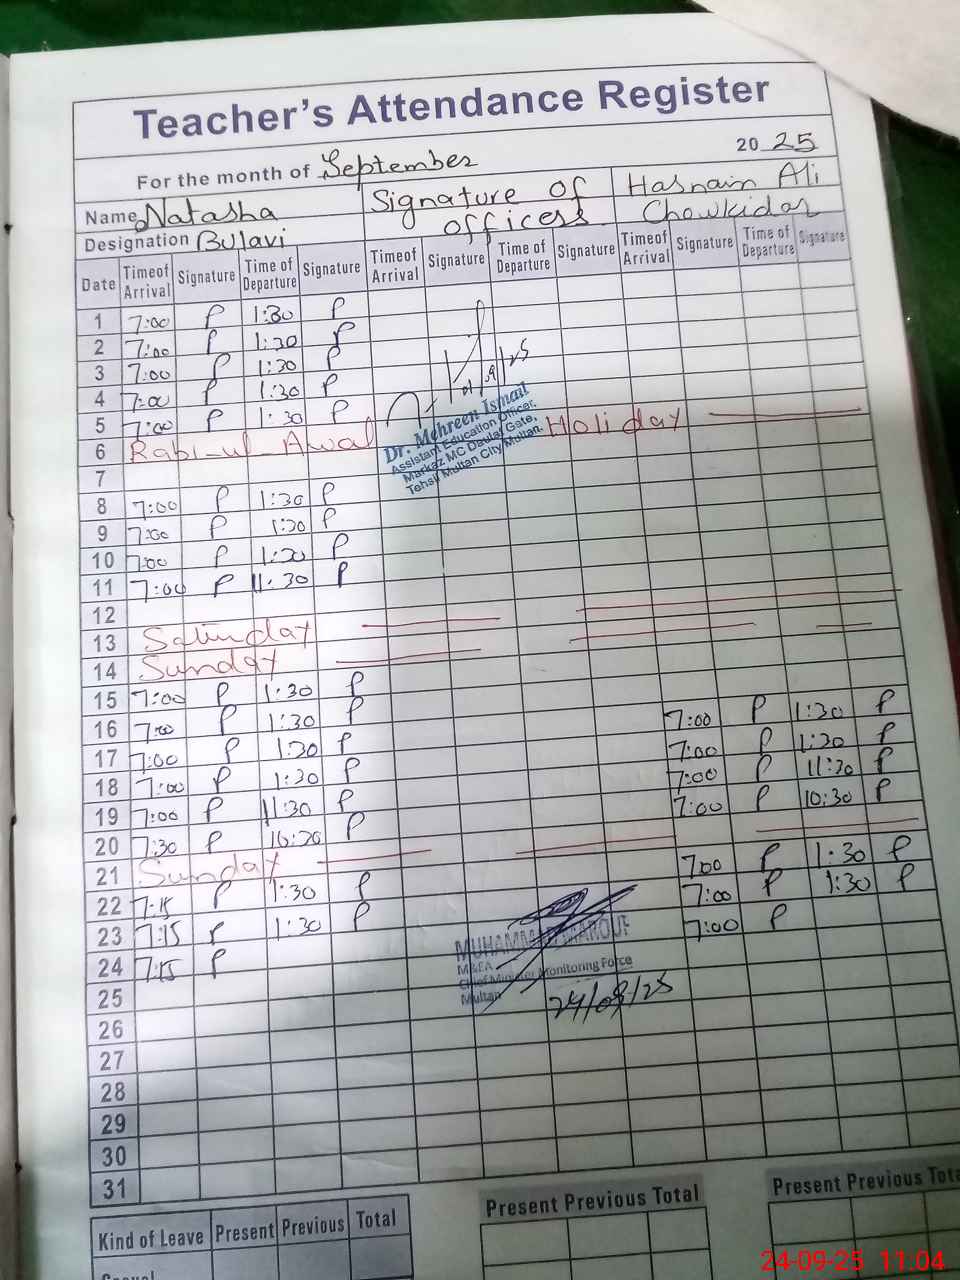 Teacher's Attendance Register
For the month of September 2025
Name Natasha Signature of officess Hasnain Ali
Designation Bulavi Chowkidar
Date Timeof Arrival Signature Time of Departure Signature Timeof Arrival Signature Time of Departure Signature Timeof Arrival Signature Time of Departure Signature
1 7:00 P 1:30 P
2 7:00 P 1:30 P
3 7:00 P 1:30 P
4 7:00 P 1:30 P
5 7:00 P 1:30 P
01/9/25
Dr. Mehreen Ismail
Assistant Education Officer,
Markaz MC Daulat Gate,
Tehsil Multan City Multan.
6 Rabi-ul-Awal Holiday
7
8 7:00 P 1:30 P
9 7:00 P 1:30 P
10 7:00 P 1:30 P
11 7:00 P 11:30 P
12
13 Saturday
14 Sunday
15 7:00 P 1:30 P
16 7:00 P 1:30 P 7:00 P 1:30 P
17 7:00 P 1:30 P 7:00 P 1:30 P
18 7:00 P 1:30 P 7:00 P 11:30 P
19 7:00 P 11:30 P 7:00 P 10:30 P
20 7:30 P 10:30 P
21 Sunday 7:00 P 1:30 P
22 7:15 P 1:30 P 7:00 P 1:30 P
23 7:15 P 1:30 P 7:00 P
24 7:15 P
MUHAMMAD MAROUF
M&EA
Chief Minister Monitoring Force
Multan
24/09/25
25
26
27
28
29
30
31
Kind of Leave Present Previous Total
Present Previous Total
Present Previous Tota
Casual
24-09-25 11:04